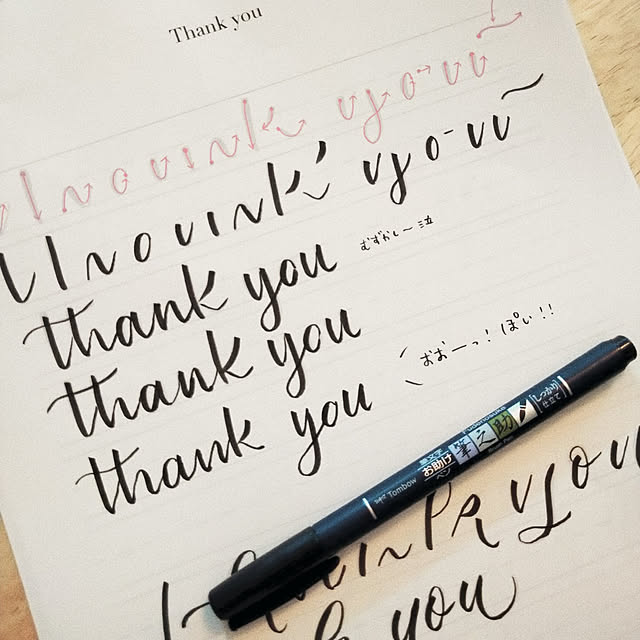 Thank you
thank you むずかし〜泣
thank you
thank you おおーっ! ぽい!!
Tombow お助け ペン 筆之助 しっかり 仕立て
you